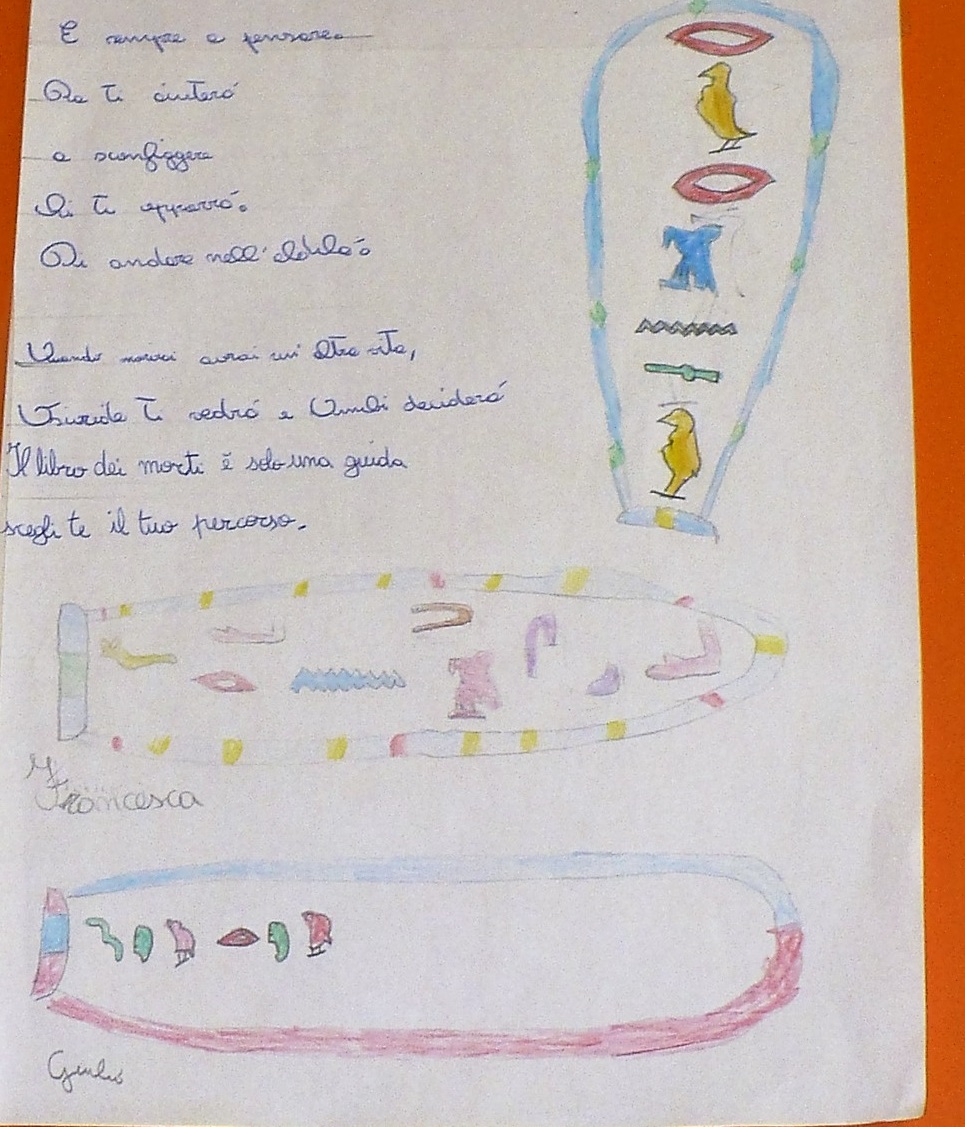 E sempre a pensare.
Ra ti aiuterà
a sconfiggere
chi ti apparrà.
Di andare nell'aldilà
Quando morirai avrai un'altra vita,
Osiride ti vedrà e Anubi deciderà
Il libro dei morti è solo una guida
scegli te il tuo percorso.
Francesca
Giulio